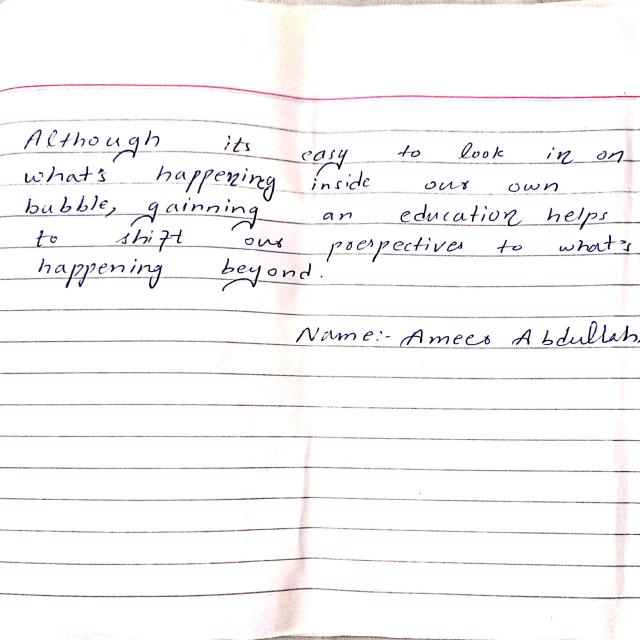 Although its easy to look in on
what's happening inside our own
bubble, gainning an education helps
to shift our perspectives to what's
happening beyond.
Name:- Ameer Abdullah